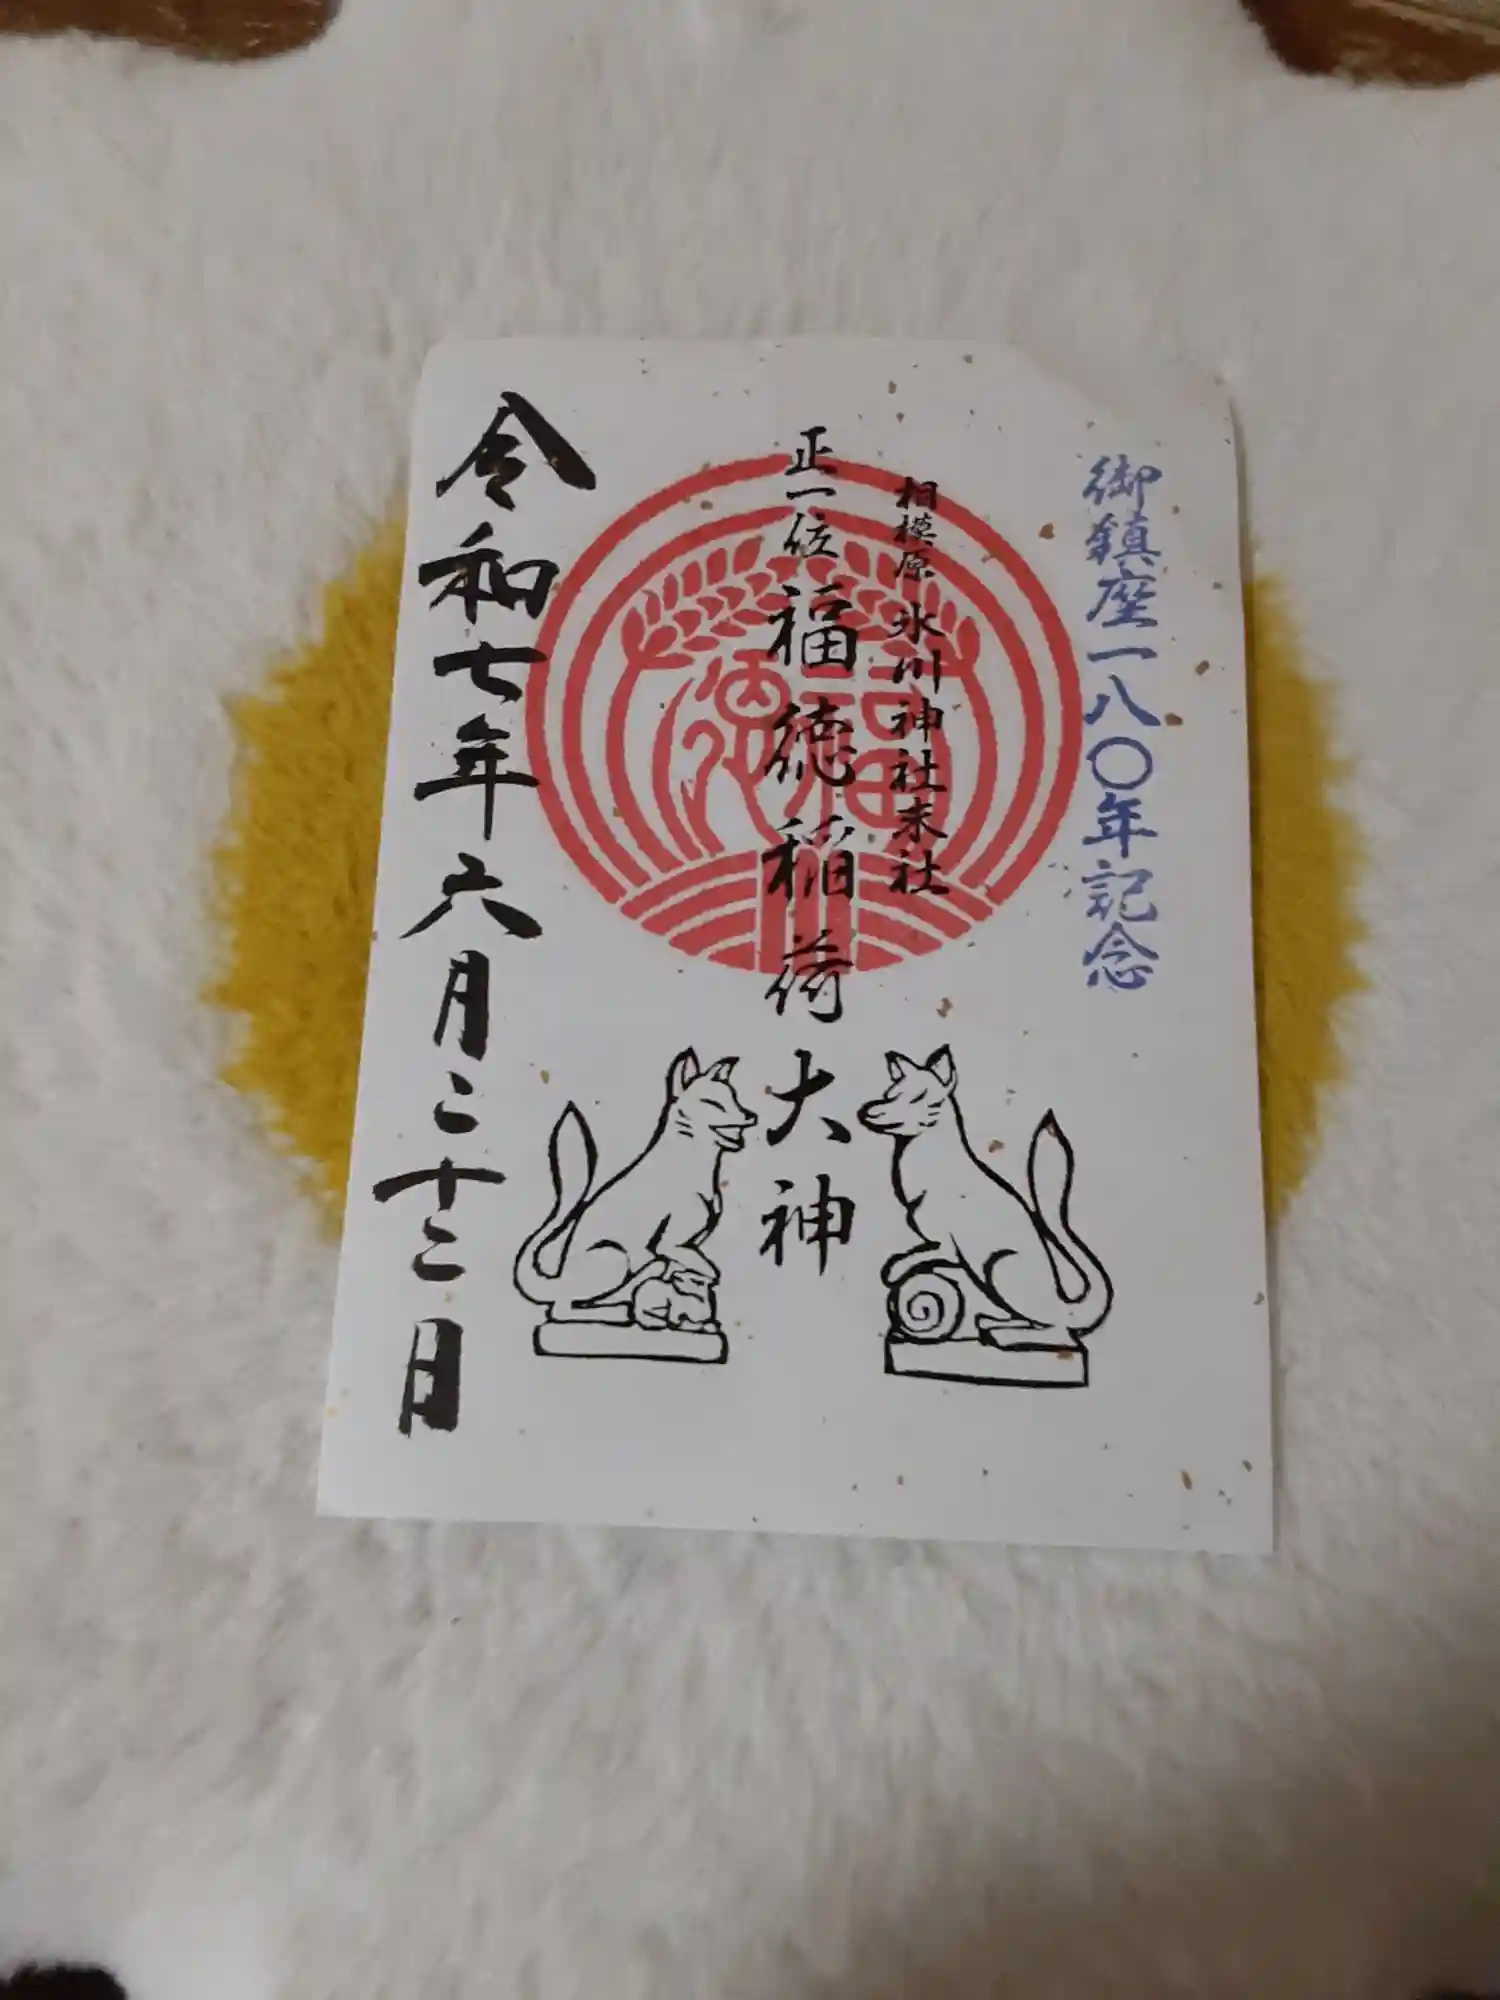 御鎮座一八〇年記念
相模原氷川神社末社
正一位福徳稲荷大神
福徳
令和七年六月二十二日